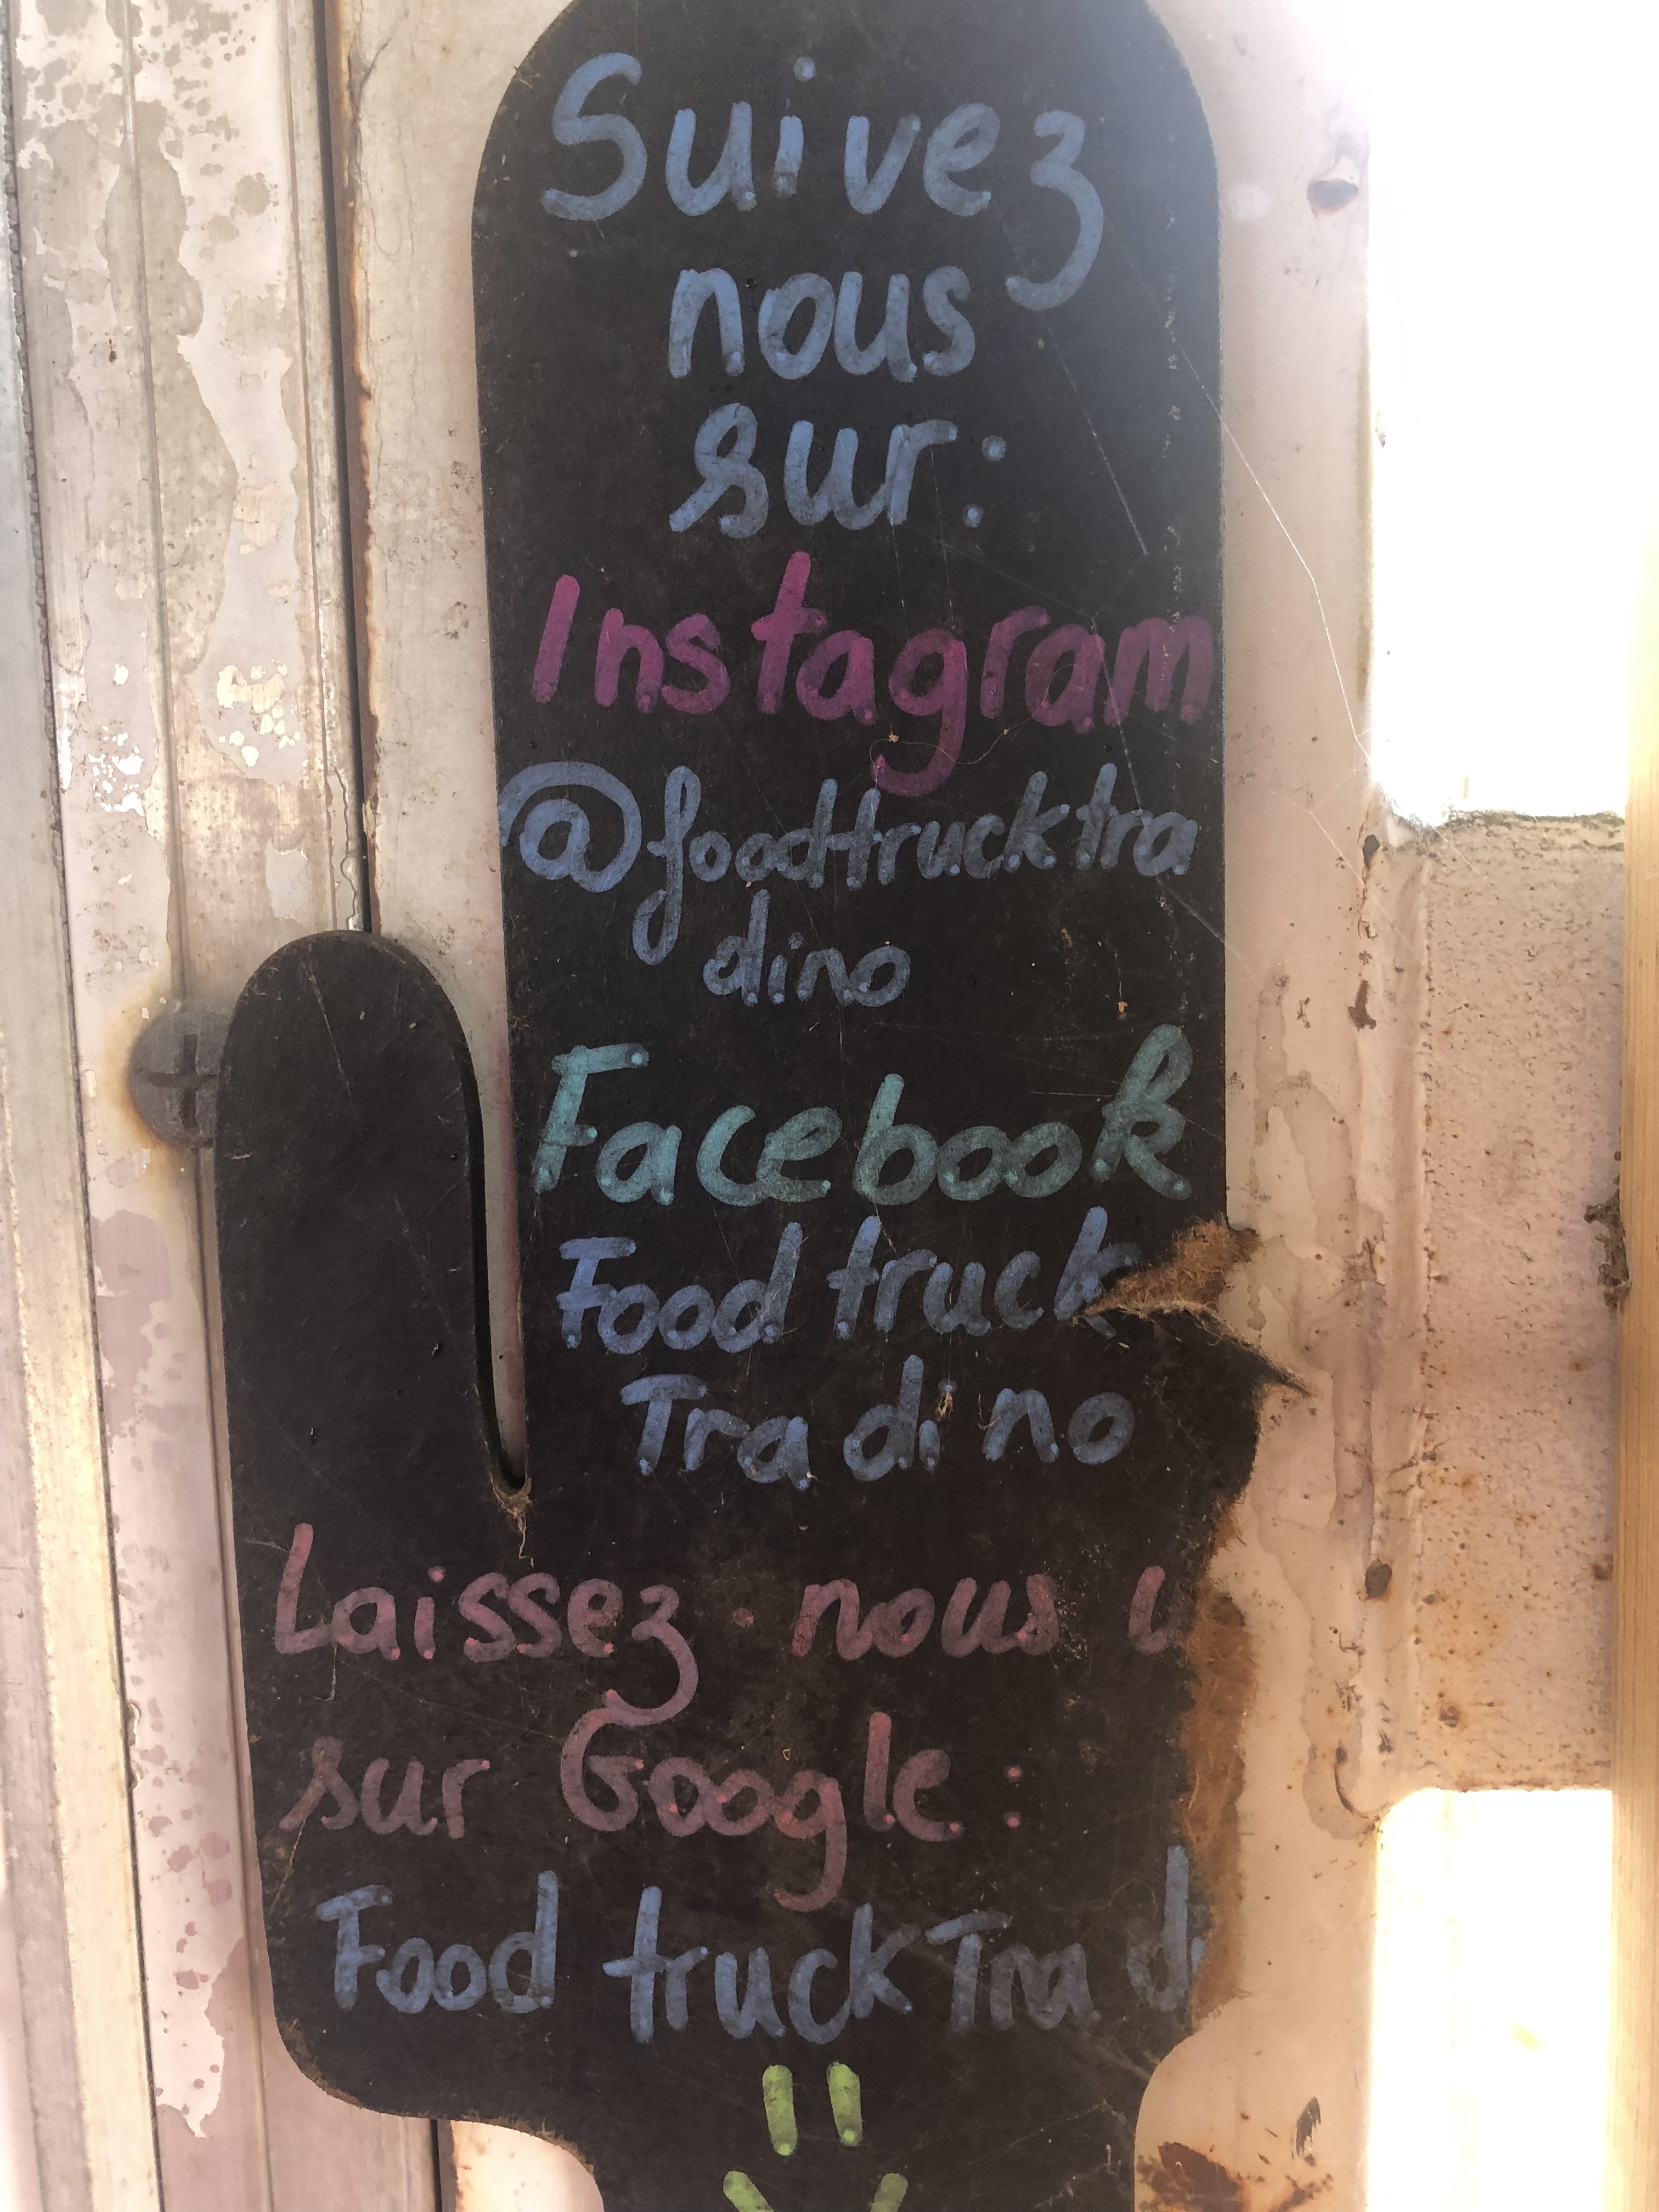 Suivez
nous
sur:
Instagram
@foodtrucktra
dino
Facebook
Food truck
Tra di no
Laissez-nous
sur Google:
Food truck Tra di